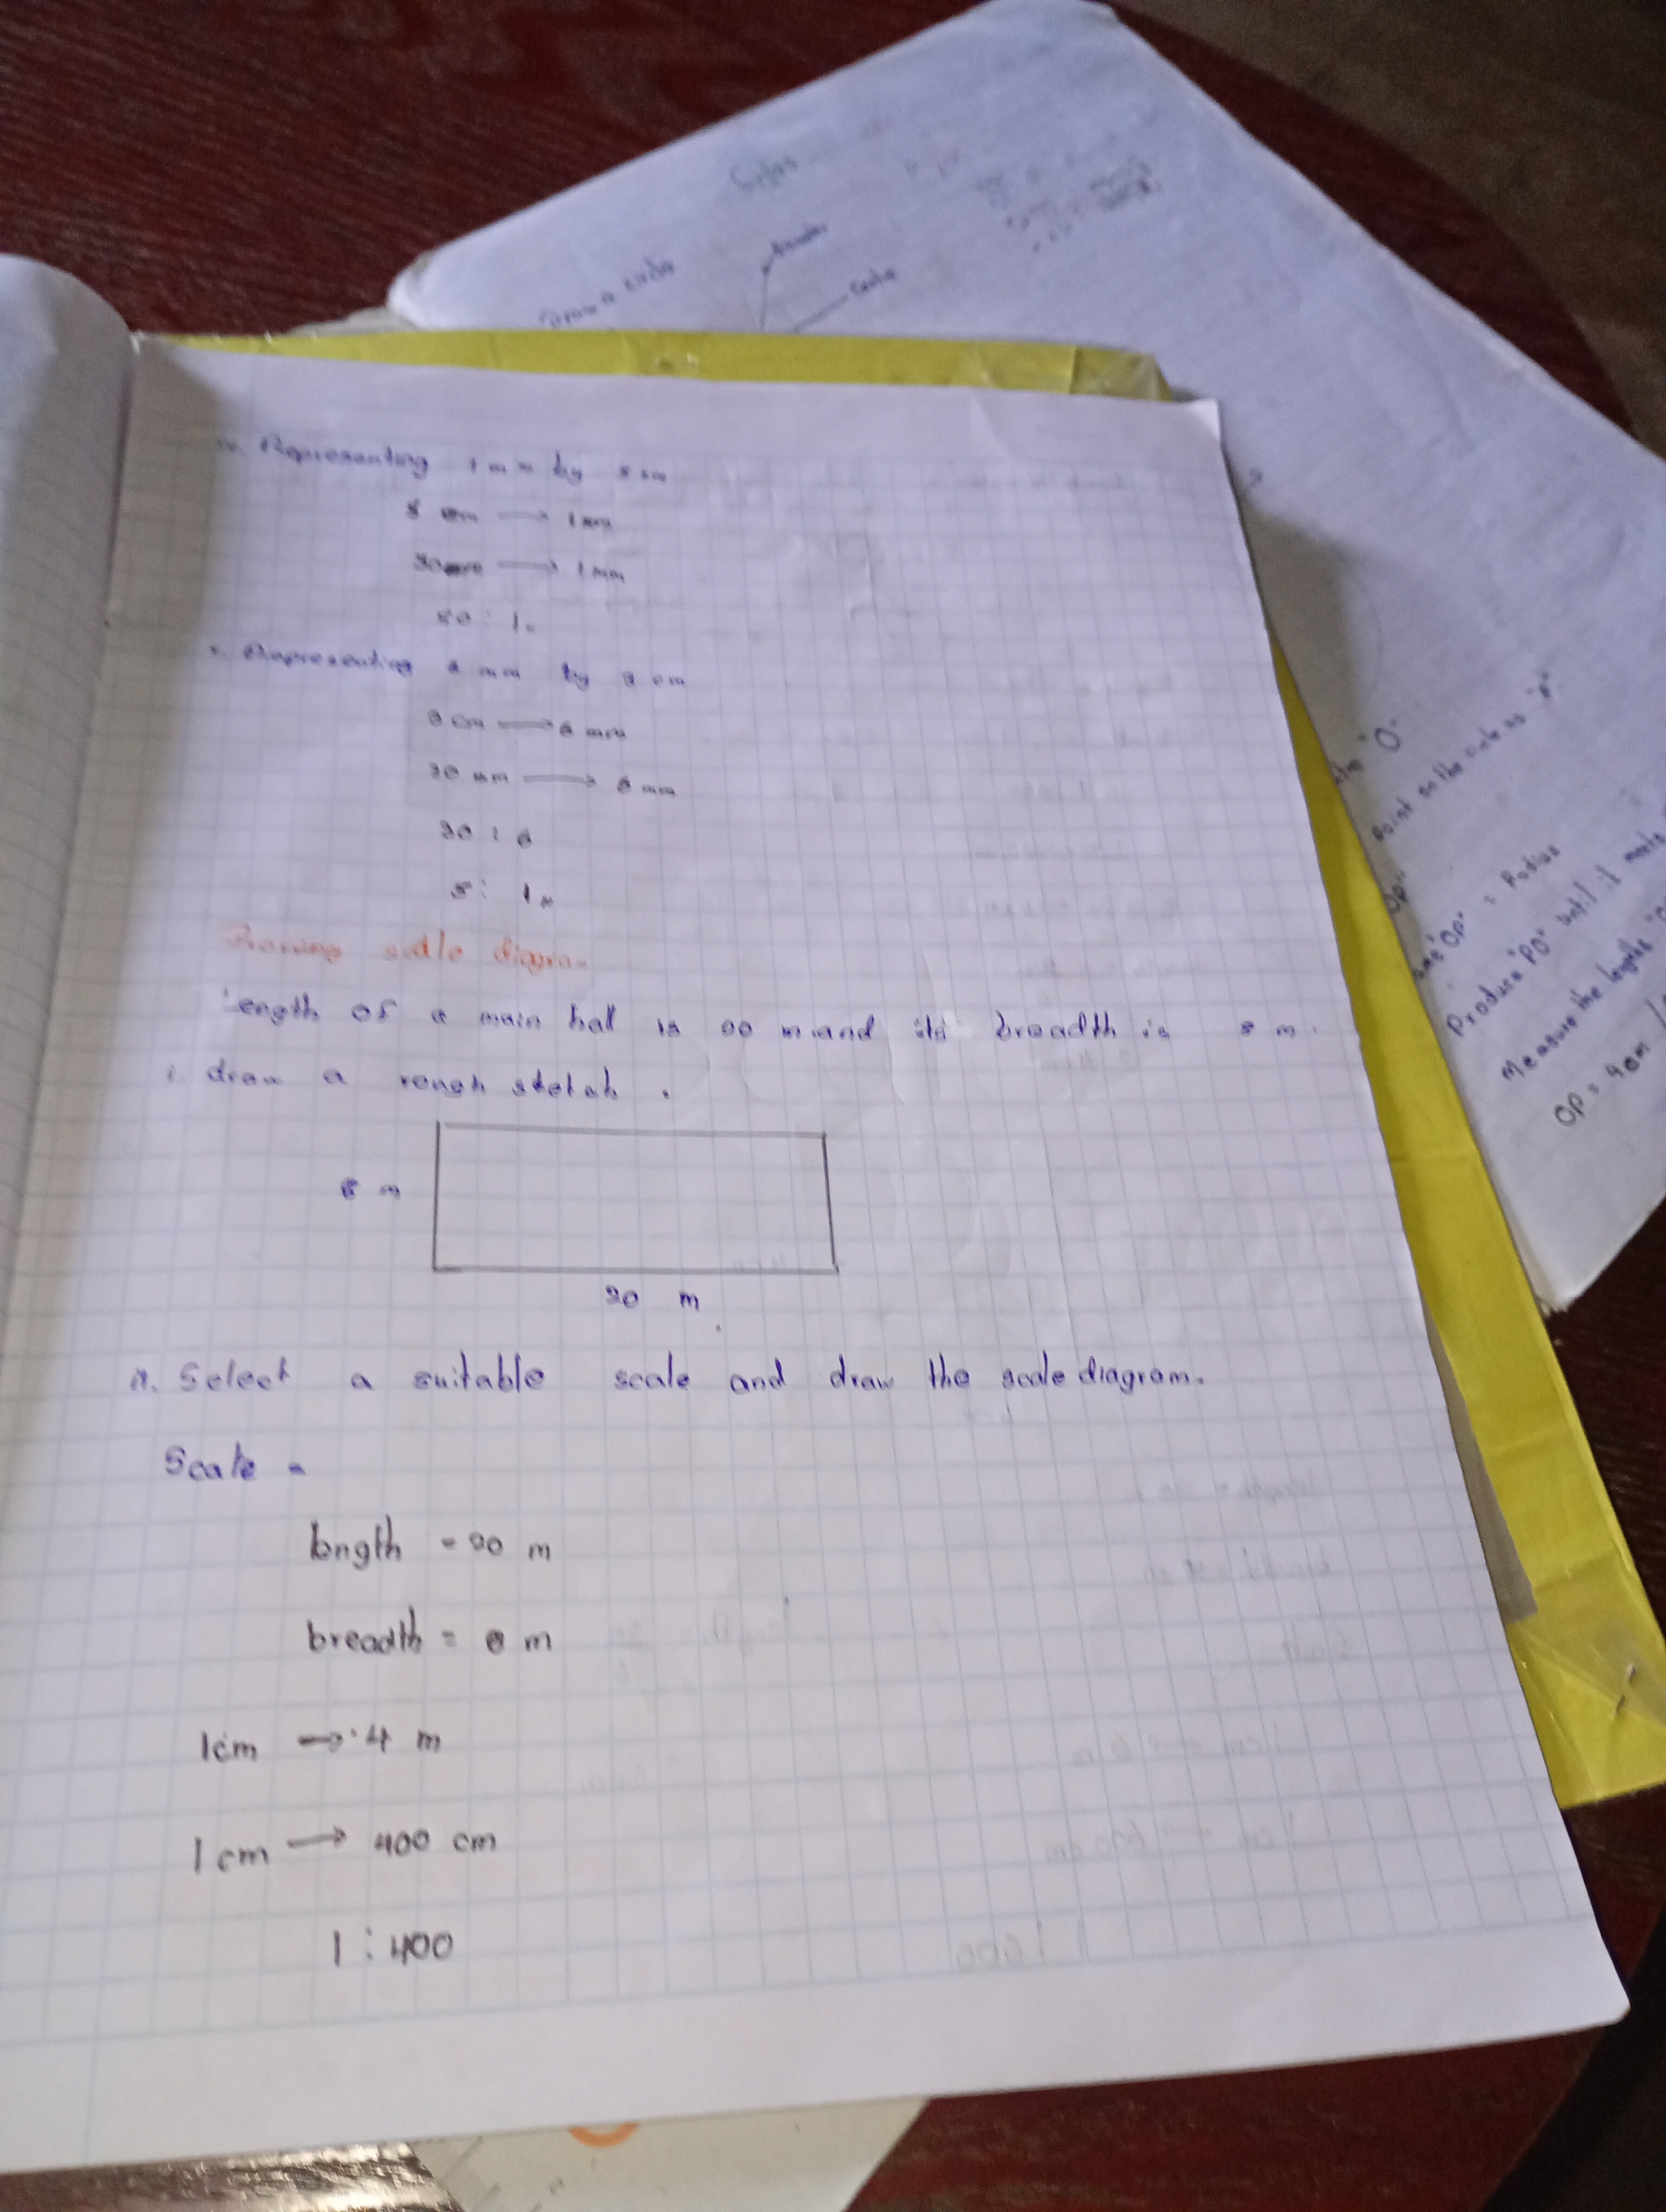 iv. Representing 1 mm by 5 cm
5 cm → 1 mm
50 mm → 1 mm
50 : 1
v. Representing 6 mm by 3 cm
3 cm → 6 mm
30 mm → 6 mm
30 : 6
5 : 1
Drawing scale diagram
Length of a main hall is 20 m and its breadth is 8 m.
i. draw a rough sketch.
8 m
20 m
ii. Select a suitable scale and draw the scale diagram.
Scale =
length = 20 m
breadth = 8 m
1cm → 4 m
1 cm → 400 cm
1 : 400
Draw a circle
Centre
"O"
point on the circle as "P"
"OP"
"OP" = Radius
Produce "PO" until it meets
Measure the lengths
OP = 4cm